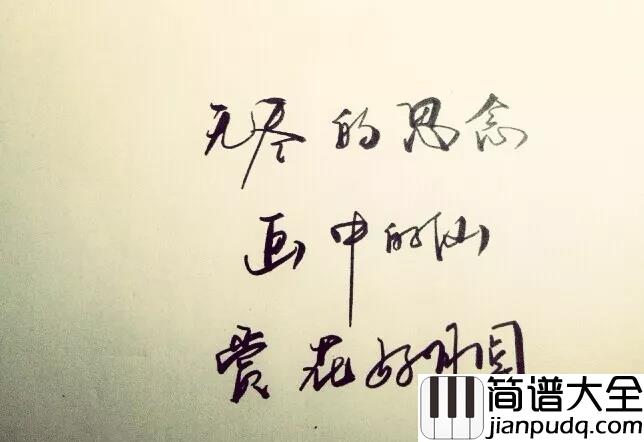 无尽的思念
画中的仙
赏花好月圆
简谱大全
jianpudq.com